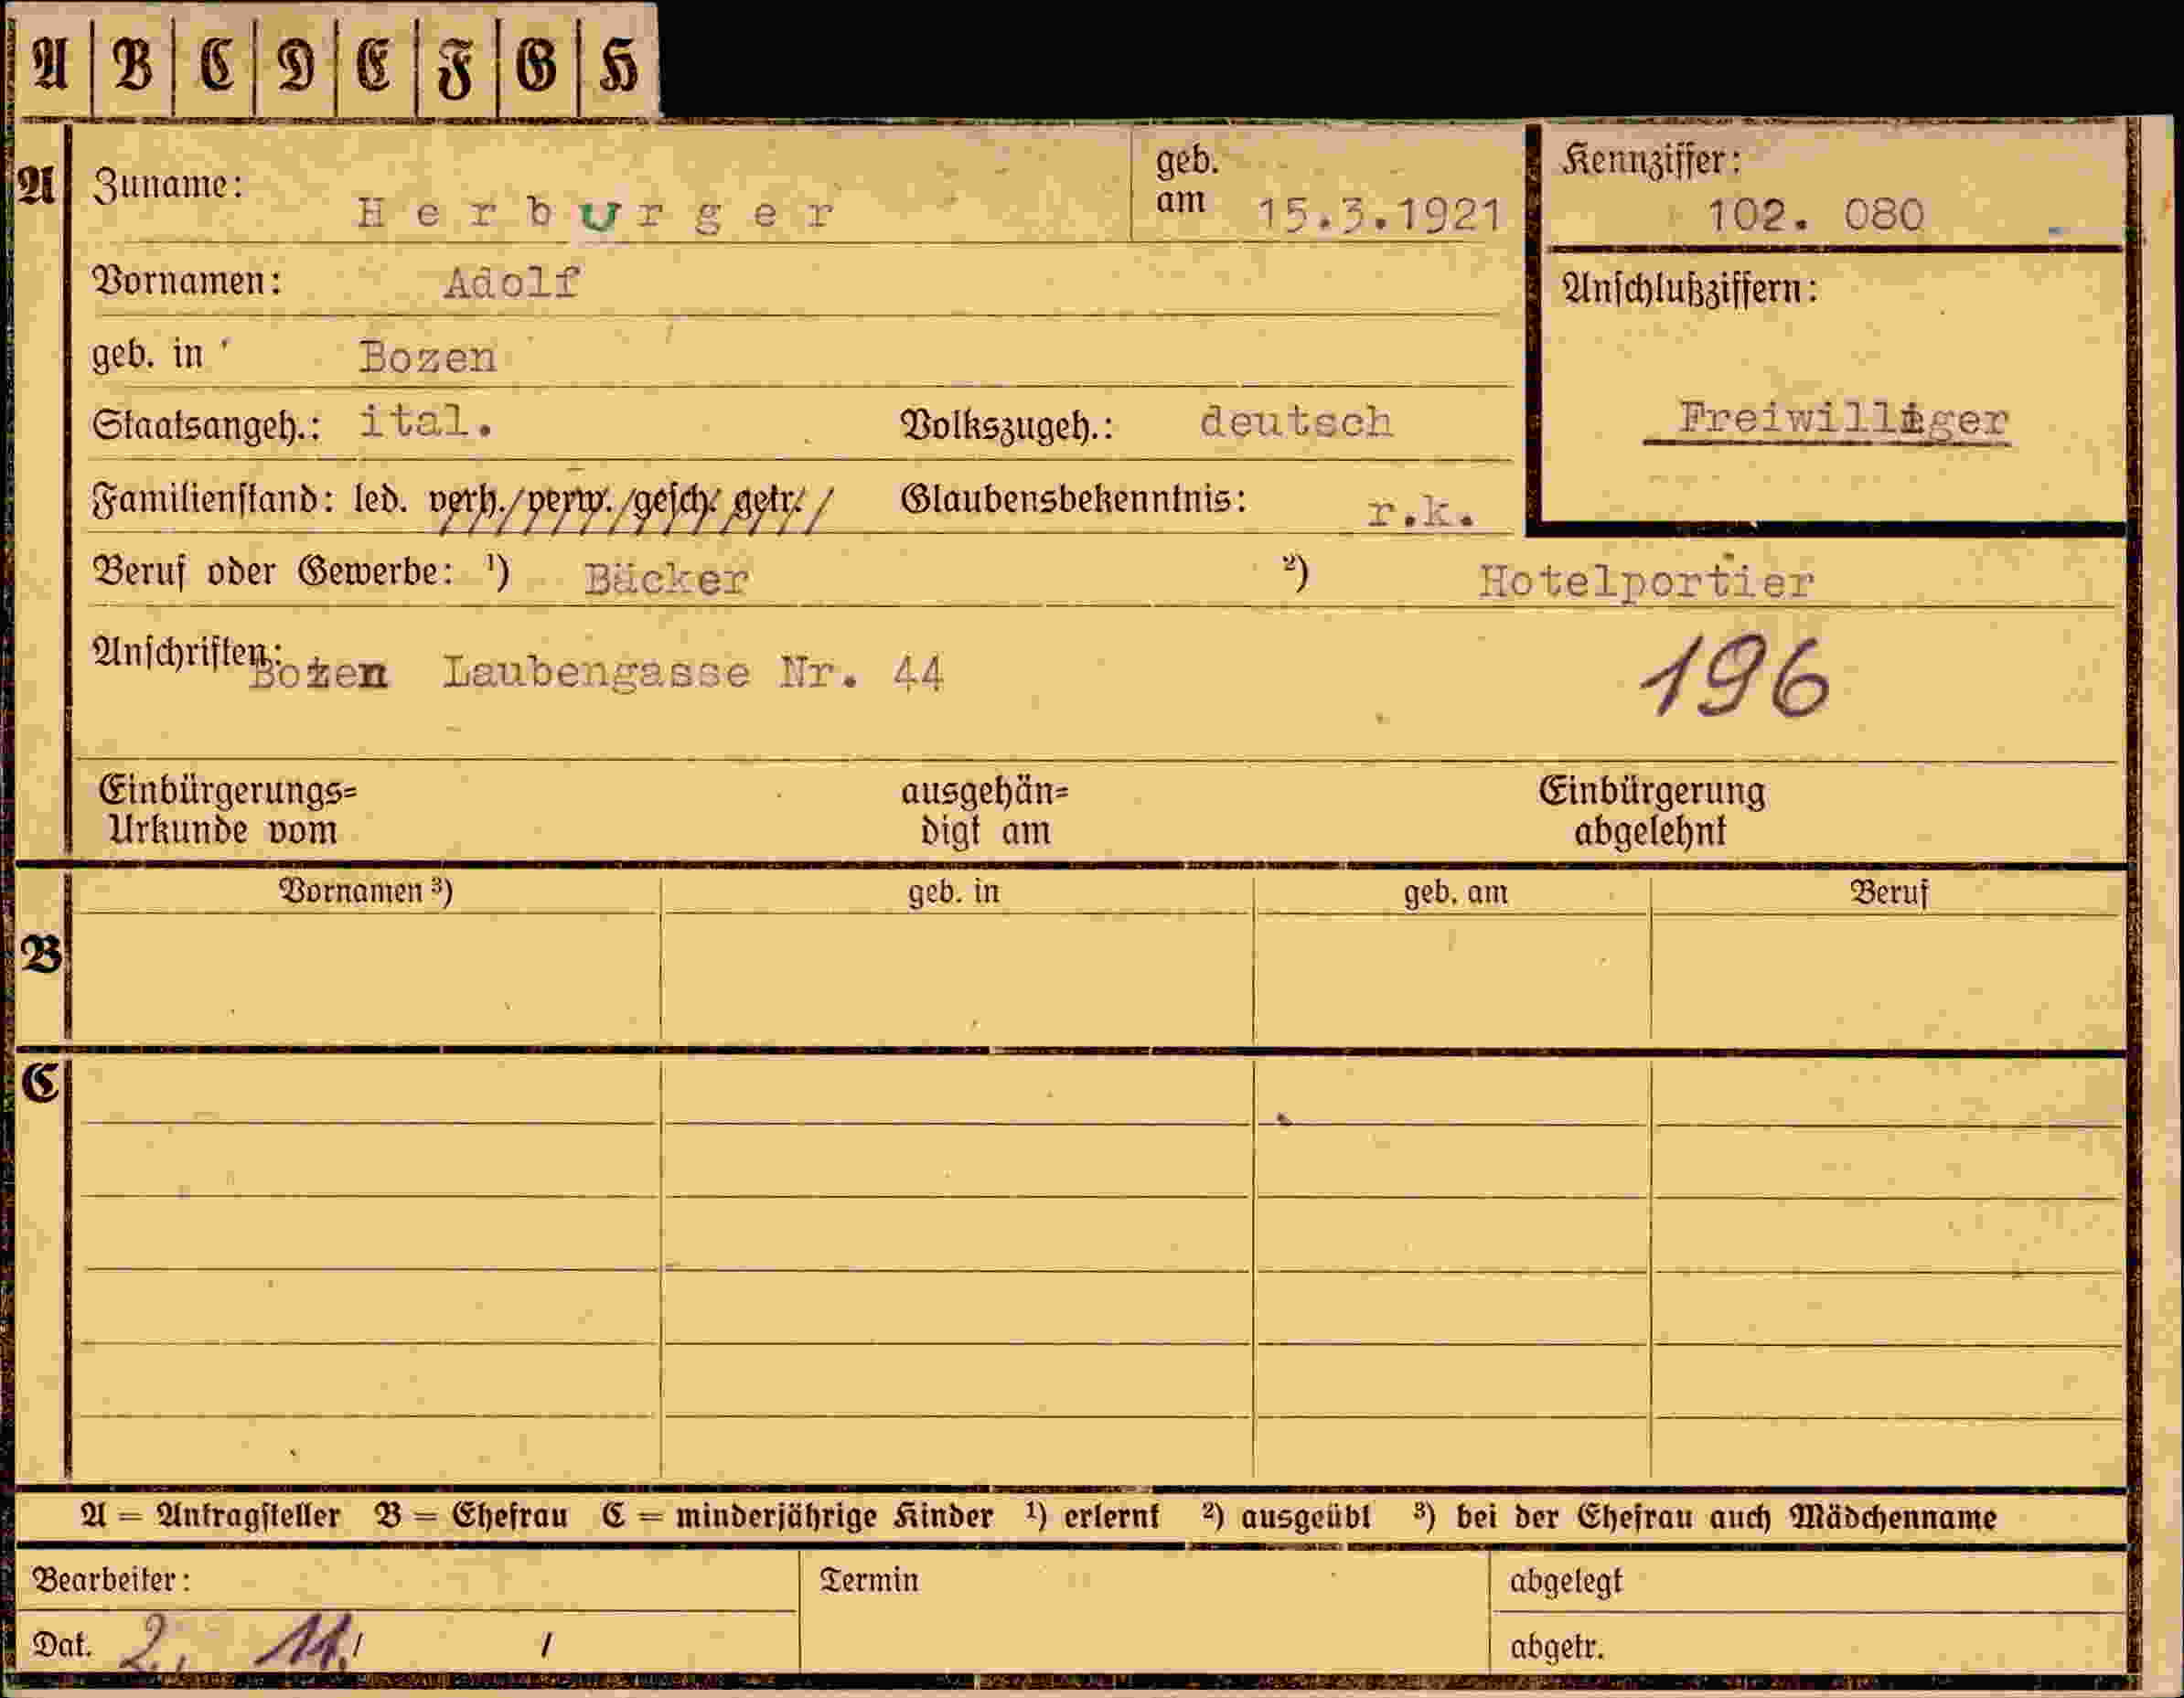 A B C D E F G H
A Zuname: Herburger geb. am 15.3.1921 Kennziffer: 102. 080
Vornamen: Adolf Anschlußziffern:
geb. in Bozen
Staatsangeh.: ital. Volkszugeh.: deutsch Freiwilliger
Familienstand: led. verh./verw./gesch./getr./ Glaubensbekenntnis: r.k.
Beruf oder Gewerbe: ¹) Bäcker ²) Hotelportier
Anschriften: Bozen Laubengasse Nr. 44 196
Einbürgerungs= ausgehän= Einbürgerung
Urkunde vom digt am abgelehnt
Vornamen ³) geb. in geb. am Beruf
B
C
A = Antragsteller B = Ehefrau C = minderjährige Kinder ¹) erlernt ²) ausgeübt ³) bei der Ehefrau auch Mädchenname
Bearbeiter: Termin abgelegt
Dat. 2. 11./ / abgetr.